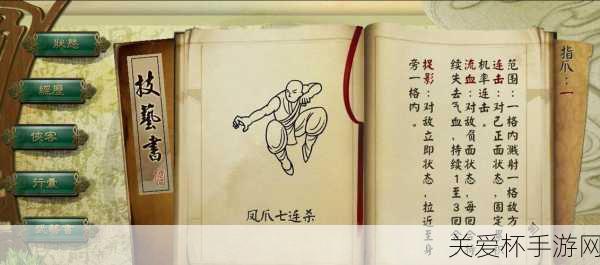 狀態
經歷
俠客
行囊
技藝書
凤爪七连杀
指爪：一
范围：一格内溅射一格敌方
连击：对己正面状态，固定
机率连击。
流血：对敌负面状态，每回合
续失去气血，持续1至3回合
捉影：对敌立即状态，拉近至身
旁一格内。
关爱杯手游网